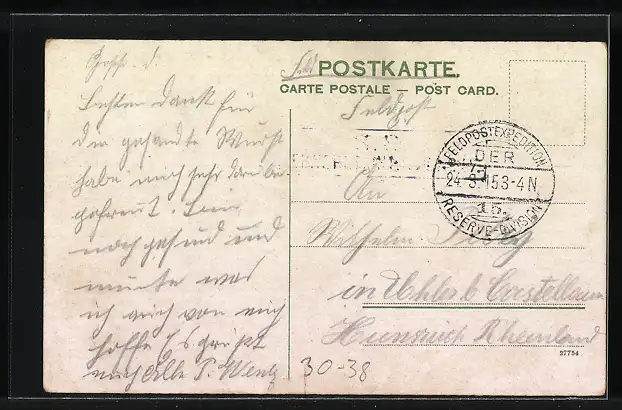 Besten Dank für
die gesandte Wurst
habe mich sehr darüber
gefreut. Bin
noch gesund und
munter was
ich auch von euch
hoffe Es grüßt
euch alle P. Wenz
Feld POSTKARTE.
CARTE POSTALE — POST CARD.
Feldpost
An
Wilhelm
in Uhler b Castellaun
Hunsrück Rheinland
FELDPOSTEXPEDITION
DER
24.3.15 3-4 N
15.
RESERVE-DIVISION
30-38
27754